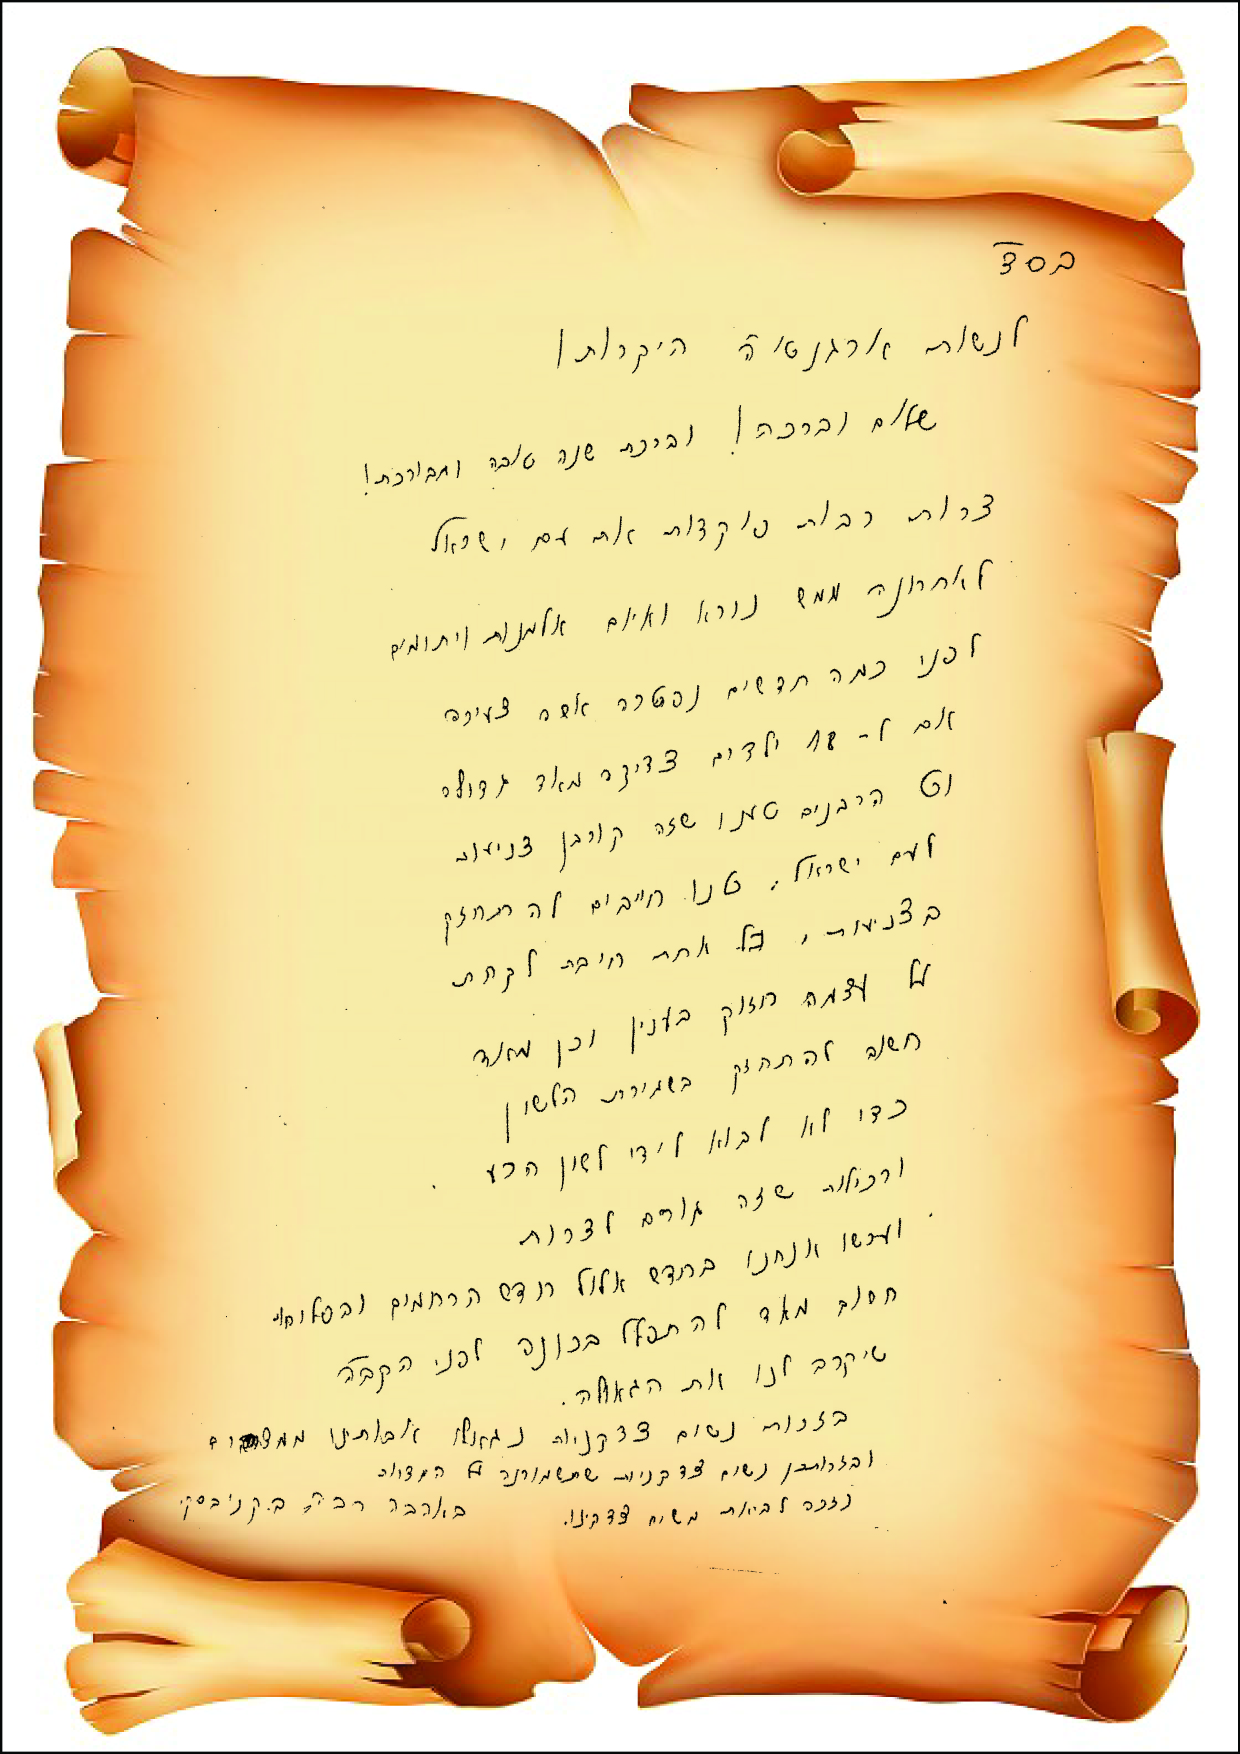 בס״ד
לנשות ארגנטינה היקרות!
שלום וברכה! וברכת שנה טובה ומבורכת!
צרות רבות פוקדות את עם ישראל
לאחרונה ממש נורא ואיום אלמנות ויתומים
לפני כמה חדשים נפטרה אשה צעירה
אם ל- ילדים צדיקה מאד גדולה
וכל הרבנים טענו שזה קורבן צניעות
לעם ישראל. כולנו חייבים להתחזק
בצניעות, כל אחת חיבת לקחת
על עצמה חיזוק בענין וכן מאד
חשוב להתחזק בשמירת הלשון
כדי לא לבוא לידי לשון הרע
ורכילות שזה גורם לצרות
ועכשו אנחנו בחדש אלול חודש הרחמים והסליחות
חשוב מאד להתפלל בכונה לפני הקב״ה
שיקרב לנו את הגאולה.
בזכות נשים צדקניות נגאלו אבותינו ממצרים
ובזכותכן נשים צדקניות שתשמורנה על המצוות
נזכה לביאת משיח צדקינו.
באהבה רבה ב. קניבסקי